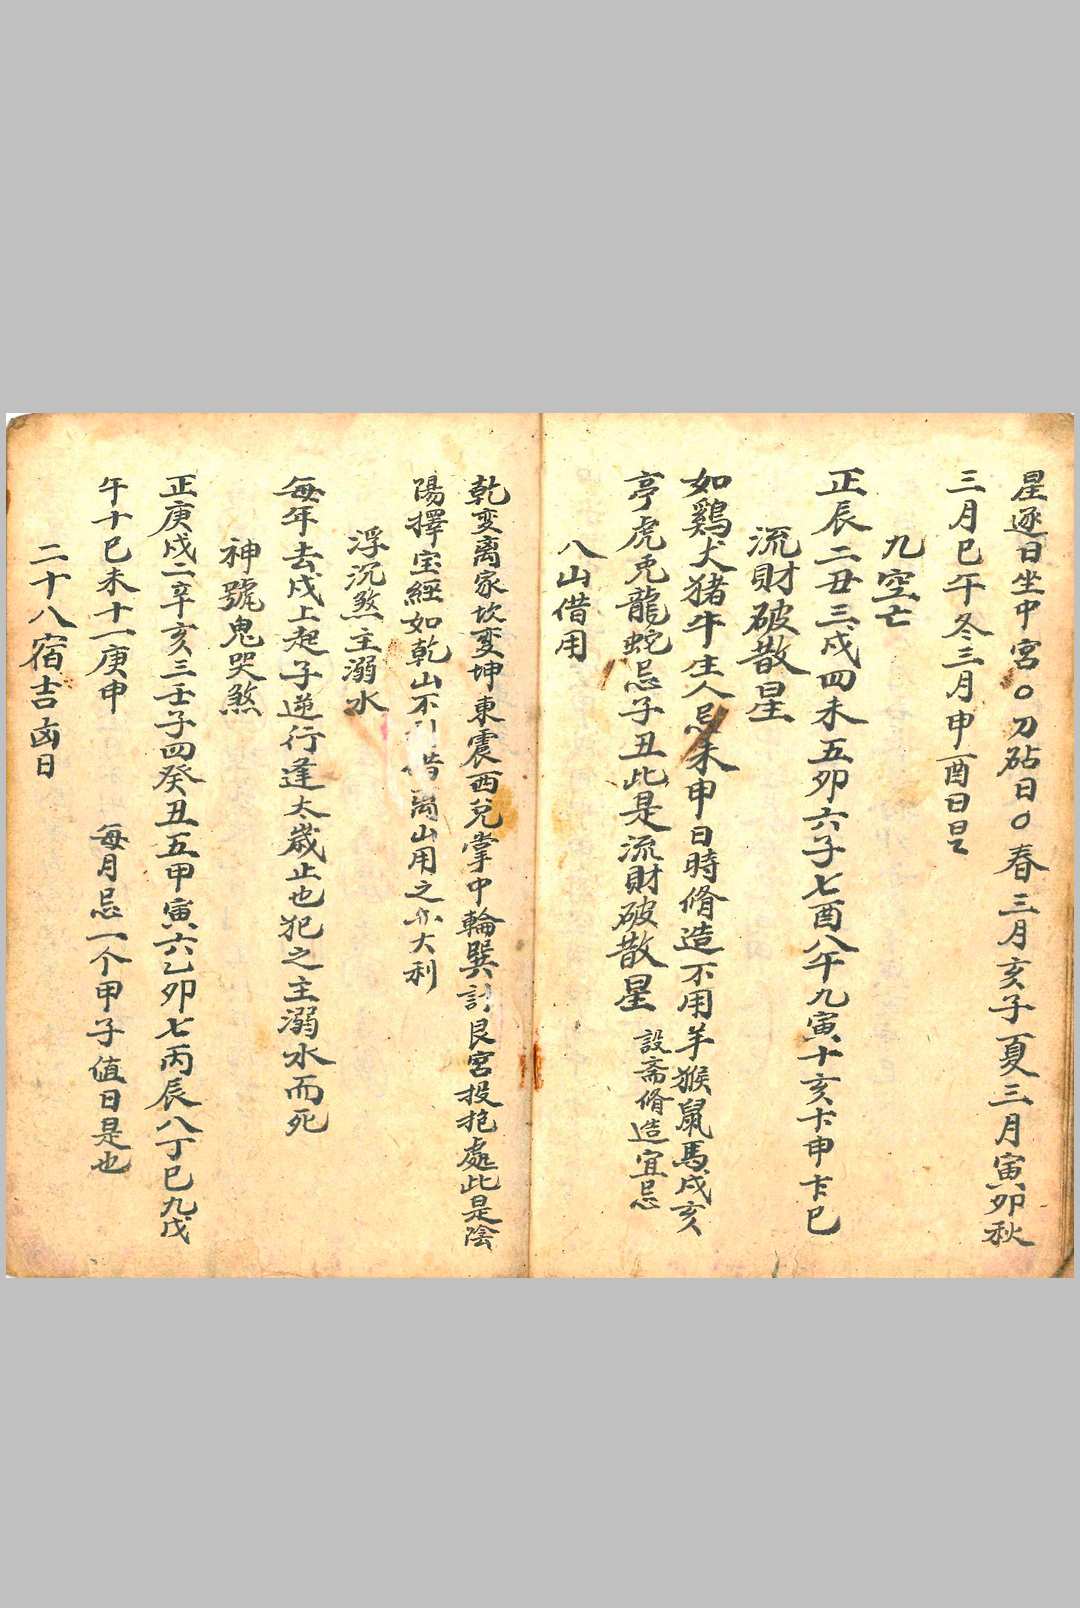 星逐日坐中宮○刀砧日○春三月亥子夏三月寅卯秋
三月巳午冬三月申酉日是
九空亡
正辰二丑三戍四未五卯六子七酉八午九寅十亥十申十巳
流財破散星
如鷄犬猪牛生人忌未申日時脩造不用羊猴鼠馬戍亥
亭虎兎龍蛇忌子丑此是流財破散星
設斋脩造宜忌
八山借用
乾変离家坎変坤東震西兊掌中輪巽 艮宮投 處此是陰
陽擇宝經如乾山不 借离山用之亦大利
浮沉煞主溺水
每年去戍上起子逆行逢太歲止也犯之主溺水而死
神號鬼哭煞
正庚戍二辛亥三壬子四癸丑五甲寅六乙卯七丙辰八丁巳九戊
午十巳未十一庚申
每月忌一个甲子值日是也
二十八宿吉凶日